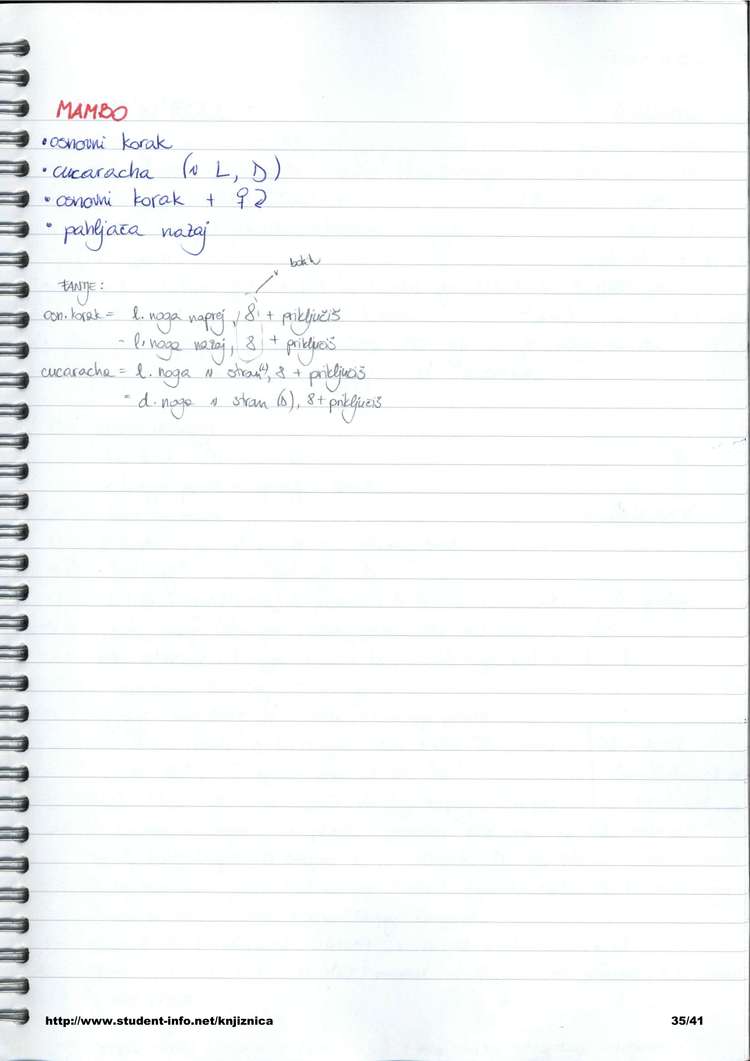 MAMBO
• osnovni korak
• cucaracha (v L, D)
• osnovni korak + ♀
• pahljača nazaj
bok
FANTJE:
osn. korak = l. noga naprej, 8 + priključiš
- l. noga nazaj, 8 + priključiš
cucaracha = l. noga v stran (L), 8 + priključiš
= d. noga v stran (D), 8 + priključiš
http://www.student-info.net/knjiznica 35/41